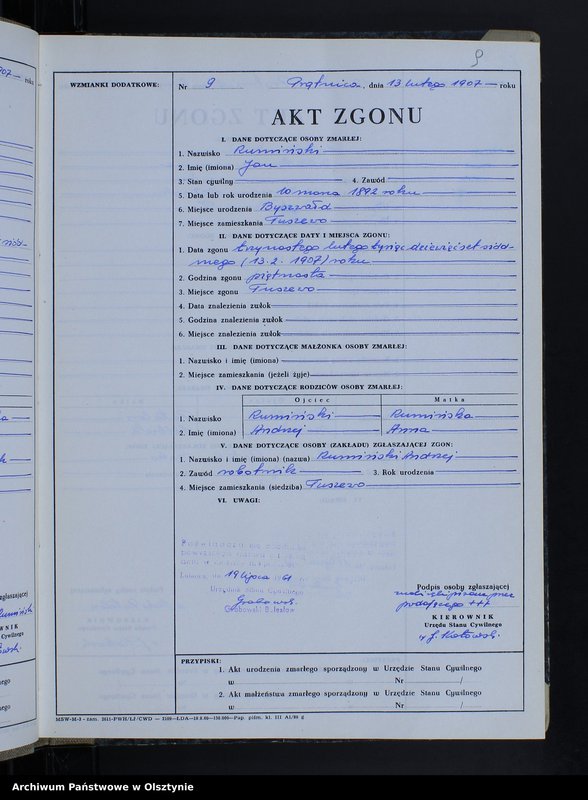 9
WZMIANKI DODATKOWE:
Nr 9 Prątnica, dnia 13 lutego 1907 — roku
AKT ZGONU
I. DANE DOTYCZĄCE OSOBY ZMARŁEJ:
1. Nazwisko Rumiński
2. Imię (imiona) Jan
3. Stan cywilny 4. Zawód
5. Data lub rok urodzenia 10 marca 1892 roku
6. Miejsce urodzenia Byszwałd
7. Miejsce zamieszkania Tuszewo
II. DANE DOTYCZĄCE DATY I MIEJSCA ZGONU:
1. Data zgonu trzynastego lutego tysiąc dziewięćset siód-
mego (13. 2. 1907) roku
2. Godzina zgonu piętnasta
3. Miejsce zgonu Tuszewo
4. Data znalezienia zwłok
5. Godzina znalezienia zwłok
6. Miejsce znalezienia zwłok
III. DANE DOTYCZĄCE MAŁŻONKA OSOBY ZMARŁEJ:
1. Nazwisko i imię (imiona)
2. Miejsce zamieszkania (jeżeli żyje)
IV. DANE DOTYCZĄCE RODZICÓW OSOBY ZMARŁEJ:
Ojciec Matka
1. Nazwisko Rumiński Rumińska
2. Imię (imiona) Andrzej Anna
V. DANE DOTYCZĄCE OSOBY (ZAKŁADU) ZGŁASZAJĄCEJ ZGON:
1. Nazwisko i imię (imiona) (nazwa) Rumiński Andrzej
2. Zawód robotnik 3. Rok urodzenia
4. Miejsce zamieszkania (siedziba) Tuszewo
VI. UWAGI:
19 lipca 1961
Urzędnik Stanu Cywilnego
Grabowski
Grabowski Bolesław
Podpis osoby zgłaszającej
podającego +++
KIEROWNIK
Urzędu Stanu Cywilnego
PRZYPISKI:
1. Akt urodzenia zmarłego sporządzony w Urzędzie Stanu Cywilnego
w Nr /
2. Akt małżeństwa zmarłego sporządzony w Urzędzie Stanu Cywilnego
w Nr /
Archiwum Państwowe w Olsztynie